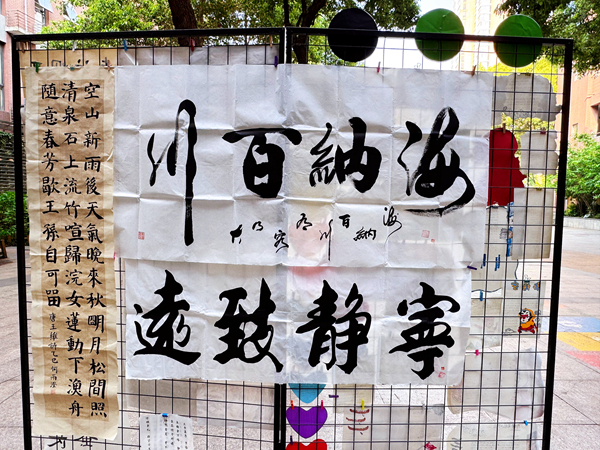 海納百川
海納百川有容乃大
寧静致遠
空山新雨後天氣晚來秋明月松間照
清泉石上流竹喧歸浣女蓮動下漁舟
随意春芳歇王孫自可留
唐王維詩